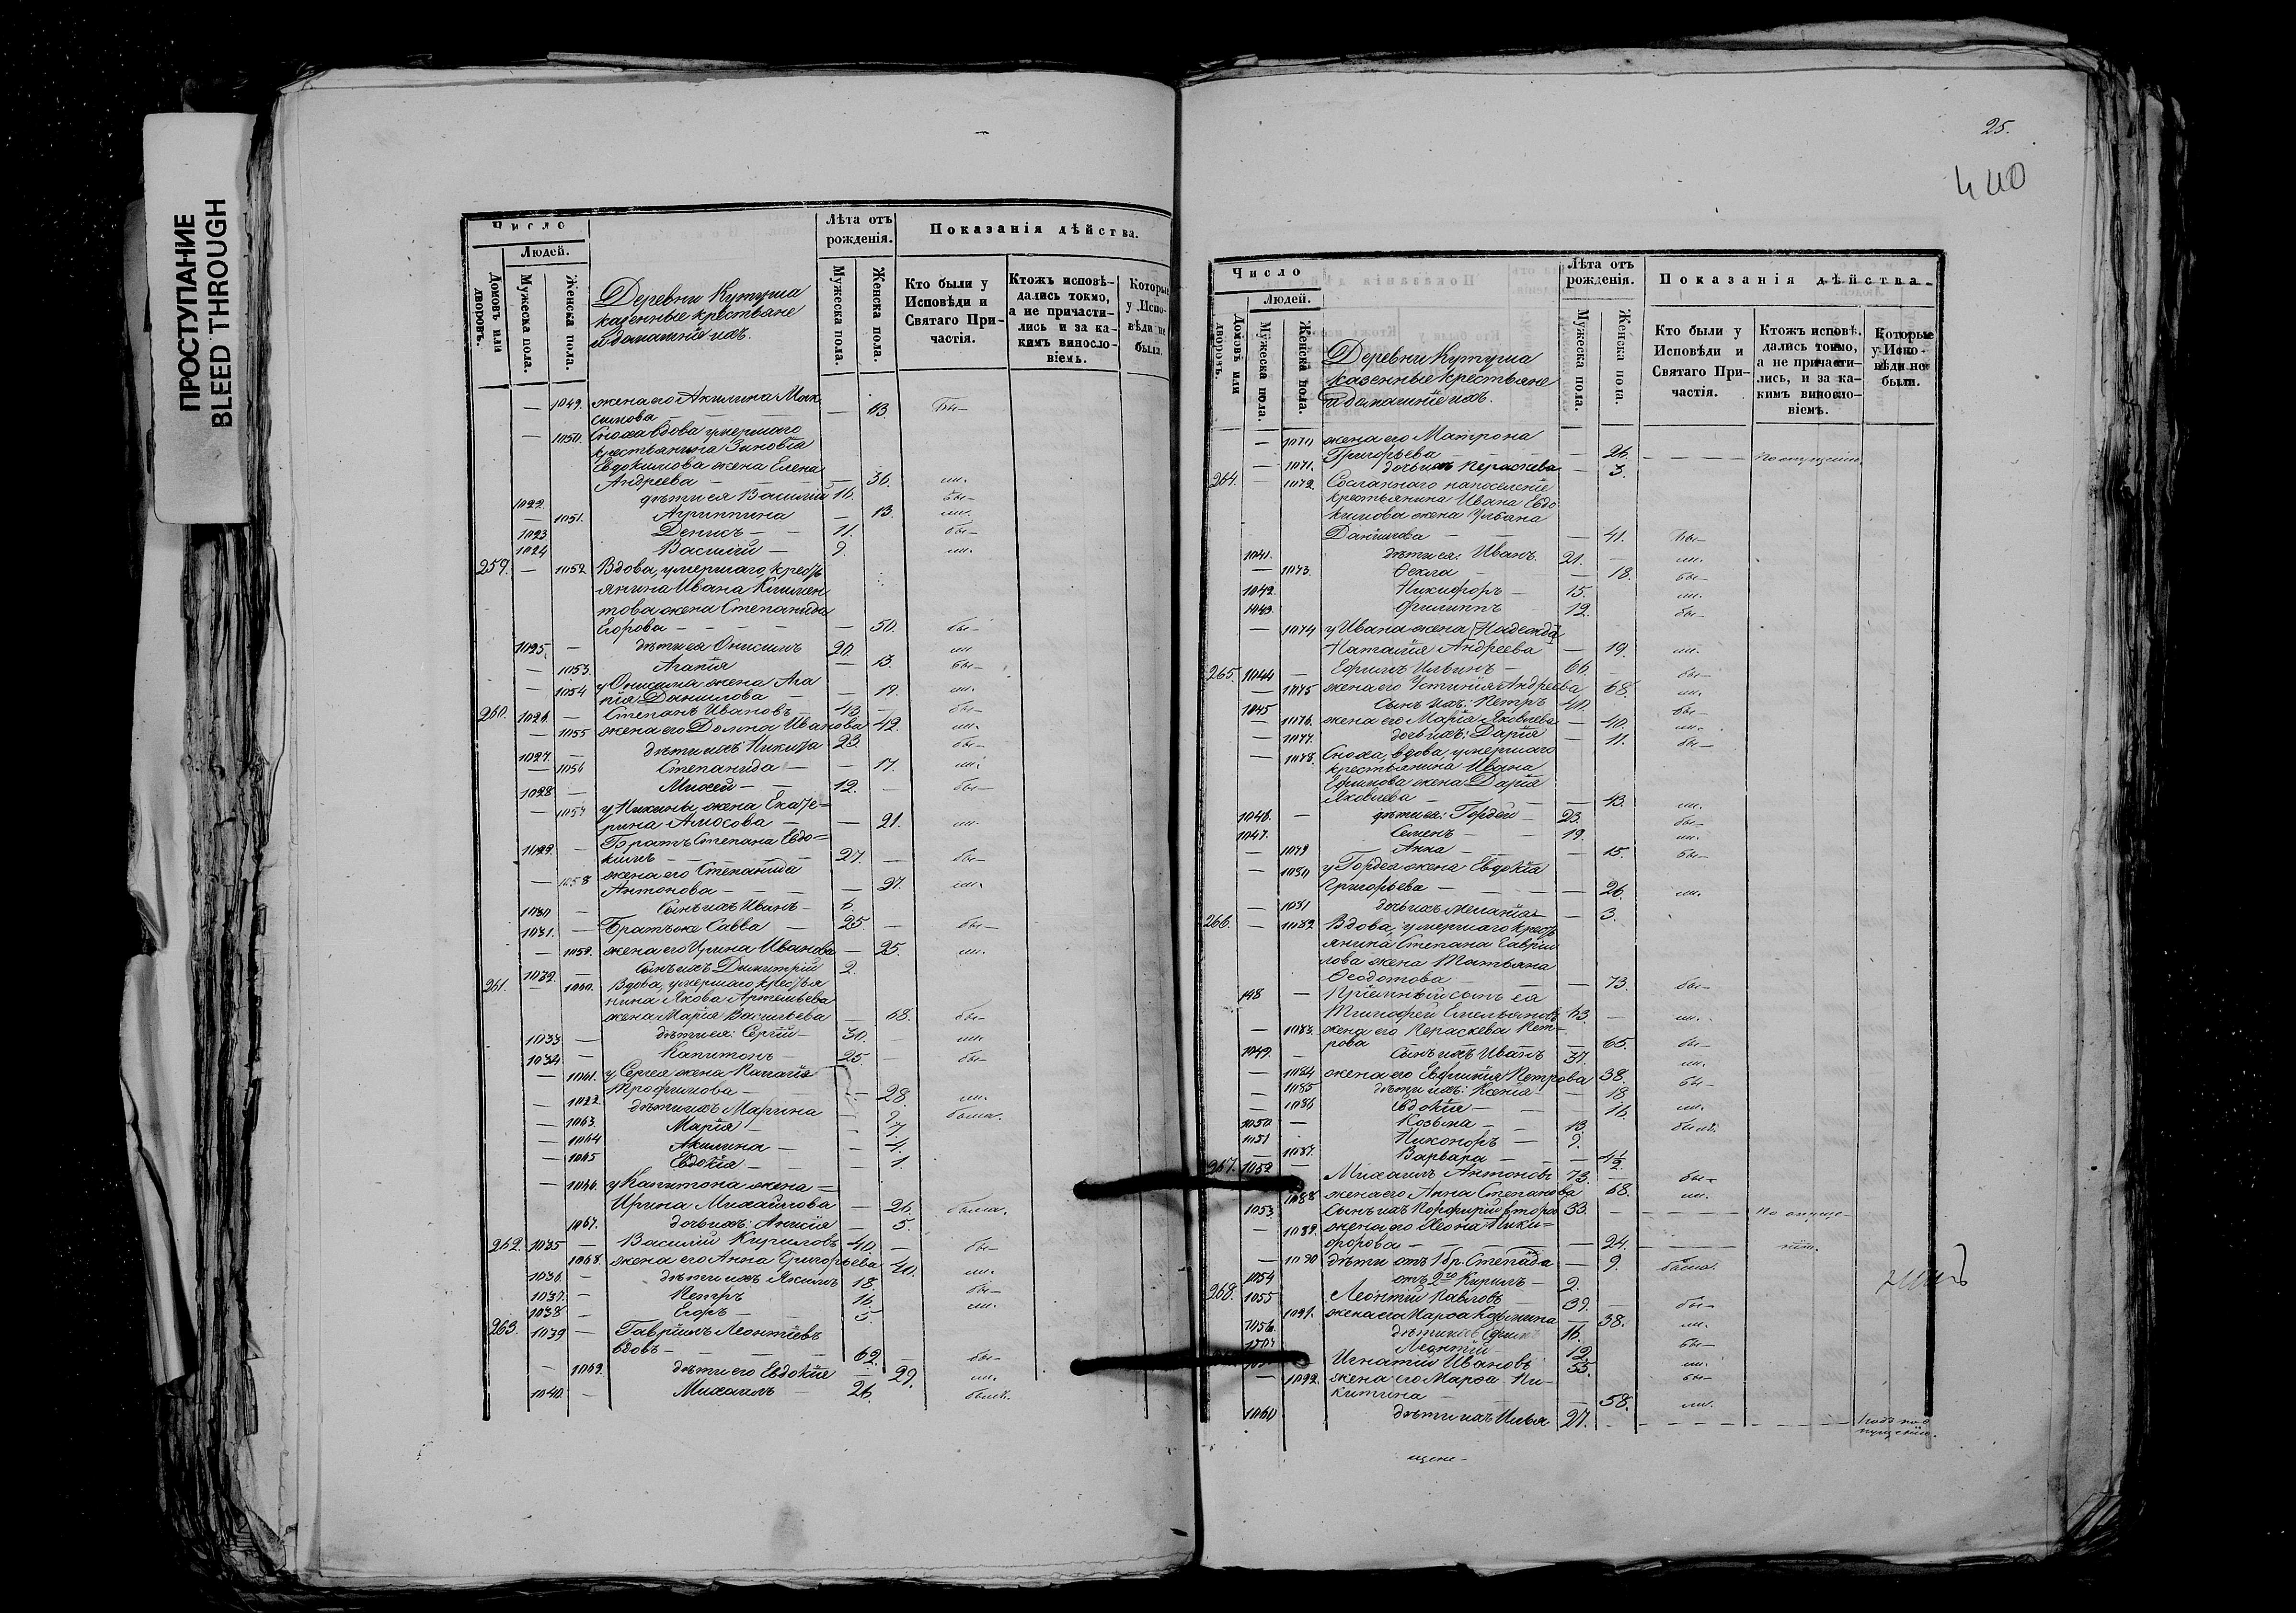 ПРОСТУПАНИЕ
BLEED THROUGH
Число
Людей.
Домовъ или дворовъ.
Мужеска пола.
Женска пола.
Деревни Кутуша
казенные крестьяне
и домашніе ихъ.
Лѣта отъ рожденія.
Мужеска пола.
Женска пола.
Показанія дѣйства.
Кто были у Исповѣди и Святаго При-частія.
Ктожъ исповѣ-дались токмо, а не причасти-лись и за ка-кимъ винослo-віемъ.
Которые у Испо-вѣди не были.
— 1049. жена его Акилина Мак
симова — — 43. Бы—
— 1050. Сноха вдова умершаго
крестьянина Зиновія
Евдокимова жена Елена
Андреева — — — 36. ли.
1022. дѣти ея Василій 16. бы—
— 1051. Агриппина — 13. ли.
1023 Денисъ — — 11. бы—
1024 Василій — 9. ли.
259. — 1052 Вдова, умершаго кресть
янина Ивана Климен
това жена Степанида
Егорова — — — — 50. бы—
1025. — дѣти ея Онисимъ 20 ли
— 1053. Агапія — 13. бы—
— 1054 у Онисима жена Ага
пія Данилова — — 19. ли.
260. 1026. — Степанъ Ивановъ — 43 — бы—
— 1055 жена его Домна Иванова 42. ли.
1027. — дѣти ихъ Никита 23. бы—
— 1056 Степанида — — 17. ли.
1028 — Мисей — — 12. — бы—
— 1057 у Никиты жена Екате=
рина Амосова — — 21. ли.
1029. — Братъ Степана Евдо=
кимъ — — — 27. — бы—
— 1058 жена его Степанида
Антонова — — — 27. ли.
1030 — Сынъ ихъ Иванъ — 6.
1031. — Братъ же Савва — 25. — бы—
— 1059. жена его Ирина Иванова — 25. ли.
1032. — Сынъ ихъ Димитрій 2.
261. — 1060. Вдова, умершаго крестья
нина Якова Артемьева
жена Марія Васильева — 68. бы—
1033 — дѣти ея: Сергій — 30. — ли
1034 — Капитонъ — 25. — бы—
— 1061. у Сергея жена Палагія
Трофимова — — — 28. ли.
— 1022. дѣти ихъ Марина — 9. была.
— 1063. Марія — — 7.
— 1064 Акилина — — 4.
— 1065 Евдокія — — 1.
— 1066. у Капитона жена =
Ирина Михайлова — 26. была.
— 1067. дочь ихъ: Анисія — 5.
262. 1035 — Василій Кириловъ 40. — бы—
1068. жена его Анна Григорьева 40. ли.
1036. — дѣти ихъ Якимъ 18. бы—
1037. — Петръ 16. ли.
1038 — Егоръ — 5.
263. 1039 — Гавріилъ Леонтіевъ
вдовъ — — — — 62. — бы—
— 1069. дѣти его Евдокія — 29. ли.
1040. — Михаилъ — 26. былъ.
25.
440
Число
Людей.
Домовъ или дворовъ.
Мужеска пола.
Женска пола.
Деревни Кутуша
казенные крестьяне
и домашніе ихъ.
Лѣта отъ рожденія.
Мужеска пола.
Женска пола.
Показанія дѣйства.
Кто были у Исповѣди и Святаго При-частія.
Ктожъ исповѣ-дались токмо, а не причасти-лись, и за ка-кимъ винословіемъ.
Которые у Испо-вѣди не были.
— 1070 жена его Матрона
Григорьева — — — 26. — — — По опущенію.
— 1071. дочь ихъ Пераскева — 3.
264. — 1072. Сосланнаго на поселеніе
крестьянина Ивана Евдо
кимова жена Ульяна
Данилова — — — 41. Бы—
1041. дѣти ея: Иванъ. 21. — ли.
— 1073. Ѳекла — — 18. бы—
1042. Никифоръ — 15. ли.
1043. Филиппъ 12. бы—
— 1074 у Ивана жена Надежда
Наталія Андреева — 19. ли.
265. 1044 — Ефимъ Ильинъ — 66. бы—
— 1075 жена его Устинія Андреева 68. ли.
1045 Сынъ ихъ: Петръ 40. бы—
— 1076. жена его Марія Яковлева — 40. ли.
— 1077. дочь ихъ: Дарія — 11. бы—
— 1078. Сноха, вдова, умершаго
крестьянина Ивана
Ефимова жена Дарія
Яковлева — — — 43. ли.
1046. — дѣти ея: Гордѣй — 23. бы—
1047. Семенъ — — 19. ли.
— 1079 Анна — — — 15. бы—
— 1080 у Гордея жена Евдокія
Григорьева — — — 26. ли.
— 1081 дочь ихъ Меланія — 3.
266. — 1082 Вдова, умершаго кресть
янина Степана Гаврии
лова жена Татьяна
Ѳеодотова — — — 73. бы—
148 — Пріемный сынъ ея
Тимофей Емельяновъ 63. — ли.
— 1083. жена его Пераскева Пет=
рова — 65. бы—
1049. — Сынъ ихъ Иванъ 37. ли.
— 1084 жена его Евфимія Петрова 38. бы—
— 1085 дѣти ихъ: Ксенія — 18 ли.
— 1086 Евдокія — — 16.
1050 — Козьма — — 13 былъ.
1051 — Никоноръ — 9.
— 1087. Варвара — — 4½.
267. 1052 — Михаилъ Антоновъ 73. — бы—
1088 жена его Анна Степанова 68. ли.
1053. Сынъ ихъ Порфирій второй 33. — — — По опуще-
— 1089. жена его Хеона Ники=
форова — — — — 24. — нію.
— 1090 дѣти отъ 1 бр. Степанида — 9. была.
1054 отъ 2го Кирилъ — 2.
268. 1055 Леонтій Павловъ 39. — бы—
1091. жена его Марѳа Кузьмина — 38. ли.
1056 дѣти ихъ Ефимъ 16. бы—
Леонтій 12. ли.
Игнатій Ивановъ 55. бы—
— 1092. жена его Марѳа Ни-
китина — — — 58. ли.
1060 дѣти ихъ Илья 27. — — — — — —